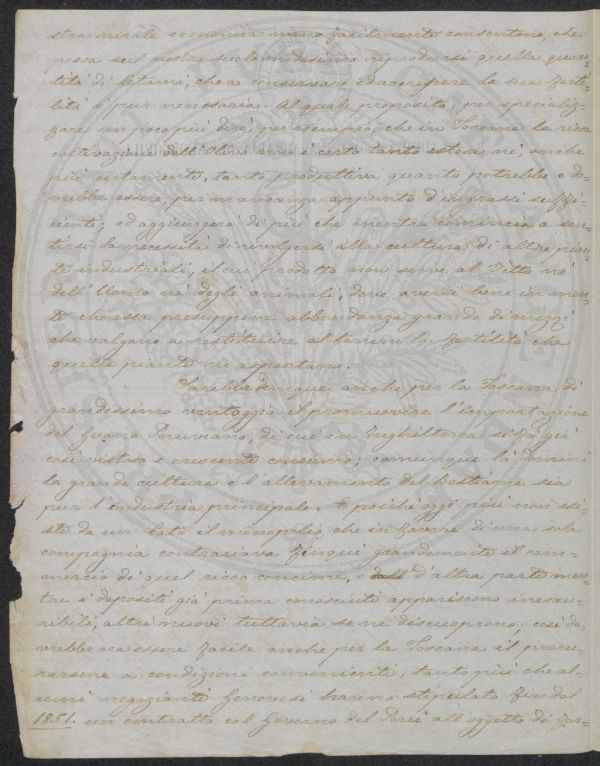 stra rurale economia meno facilmente consentono, che
possa sul nostro suolo medesimo riprodursi quella quan-
tità di letami, che a conservare ed accrescere la sua ferti-
lità è pur necessaria. Al quale proposito, per specializ-
zare un poco più dirò, per esempio, che in Toscana la ricca
coltivazione dell'Olivo non è certo tanto estesa nè, anche
più certamente, tanto produttiva quanto potrebbe e do-
vrebbe essere, per mancanza appunto d'ingrassi suffi-
cienti; ed aggiungerò di più che mentre comincia a sen-
tirsi la necessità di rivolgersi alla cultura di altre pian-
te industriali, il cui prodotto non serve al Vitto nè
dell'Uomo nè degli animali, deve aversi bene in men-
te che essa presuppone abbondanza grande di mezzi
che valgano a restituire al terreno la fertilità che
quelle piante ne asportano.
Sarebbe dunque anche per la Toscana di
grandissimo vantaggio il promuovere l'importazione
del Guano Peruviano, di cui in Inghilterra si fa già
così vistoso e crescente consumo; comunque là domini
la grande cultura e l'allevamento del Bestiame sia
pur l'industria principale. E poichè oggi più non esi-
ste da un lato il monopolio, che in favore di una sola
compagnia contrariava finquì grandemente il com-
mercio di quel ricco concime, e d'altra parte men-
tre i depositi già prima conosciuti appariscono inesau-
ribili, altri nuovi tuttavia se ne discuoprono; così do-
vrebbe ora essere facile anche per la Toscana il procu-
rarsene a condizioni convenienti, tanto più che al-
cuni negozianti Genovesi hanno stipulato fin dal
1851. un contratto col Governo del Perù all'oggetto di for-